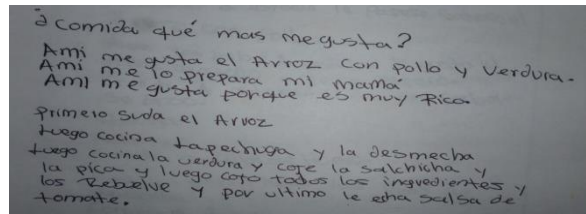 ¿comida qué mas me gusta?
Ami me gusta el Arroz con pollo y verdura.
Ami me lo prepara mi mamá
Ami me gusta porque es muy Rico.
primero suda el Arroz
luego cocina la pechuga y la desmecha
luego cocina la verdura y coje la salchicha y
la pica y luego cojo todos los ingredientes y
los Rebuelve y por ultimo le echa salsa de
tomate.